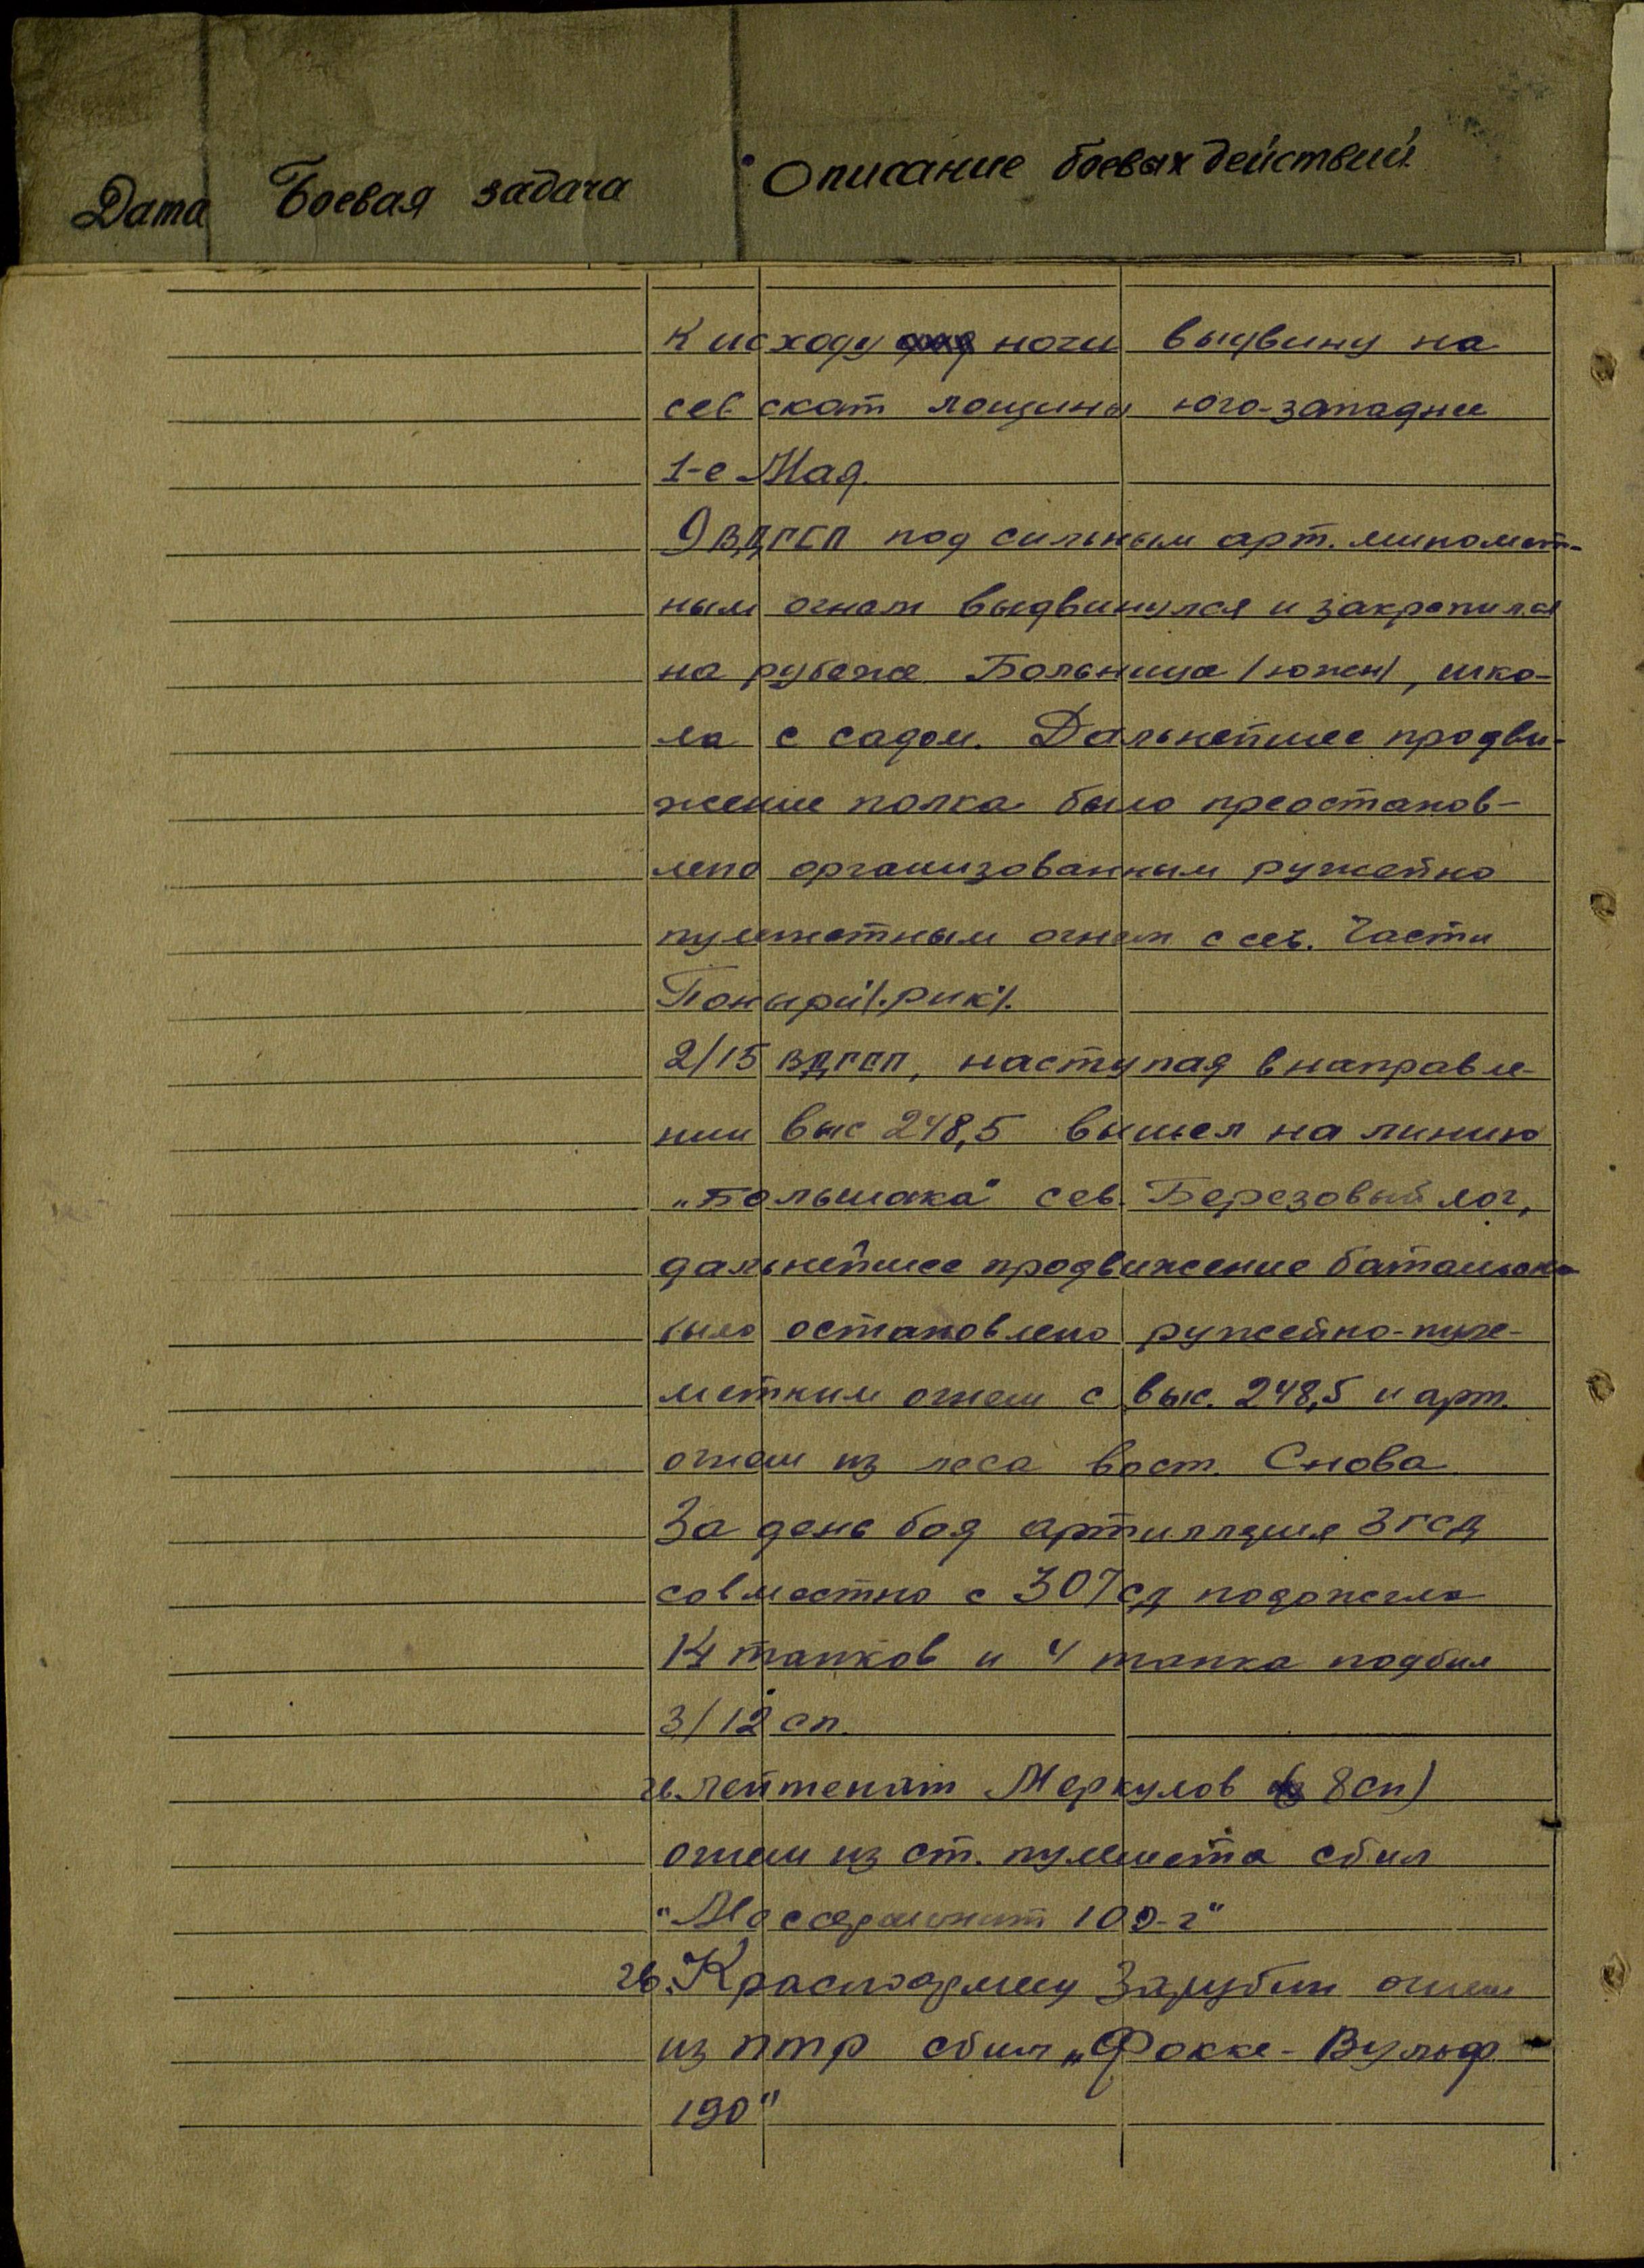 Дата Боевая задача Описание боевых действий
К исходу ночи выдвину на
сев скат лощины юго-западнее
1-е Мая.
9 вдгсп под сильным арт. миномет-
ным огнем выдвинулся и закрепился
на рубеже Больница /южн/, шко-
ла с садом. Дальнейшее продви-
жение полка было преостанов-
лено организованным ружейно
пулеметным огнем с сев. части
Поныри /.рик/.
2/15 вдгсп, наступая в направле-
нии выс 248,5 вышел на линию
„Большака" сев. Березовый лог,
дальнейшее продвижение батальона
было остановлено ружейно-пуле-
метным огнем с выс. 248,5 и арт.
огнем из леса вост. Снова
За день боя артиллерия 3 гсд
совместно с 307 сд подожгла
14 танков и 4 танка подбил
3/12 сп.
гв. лейтенант Меркулов 8 сп)
огнем из ст. пулемета сбил
"Мессершмит 109-г"
гв. Красноармеец Зарубин огнем
из птр сбил „Фокке-Вульф
190"